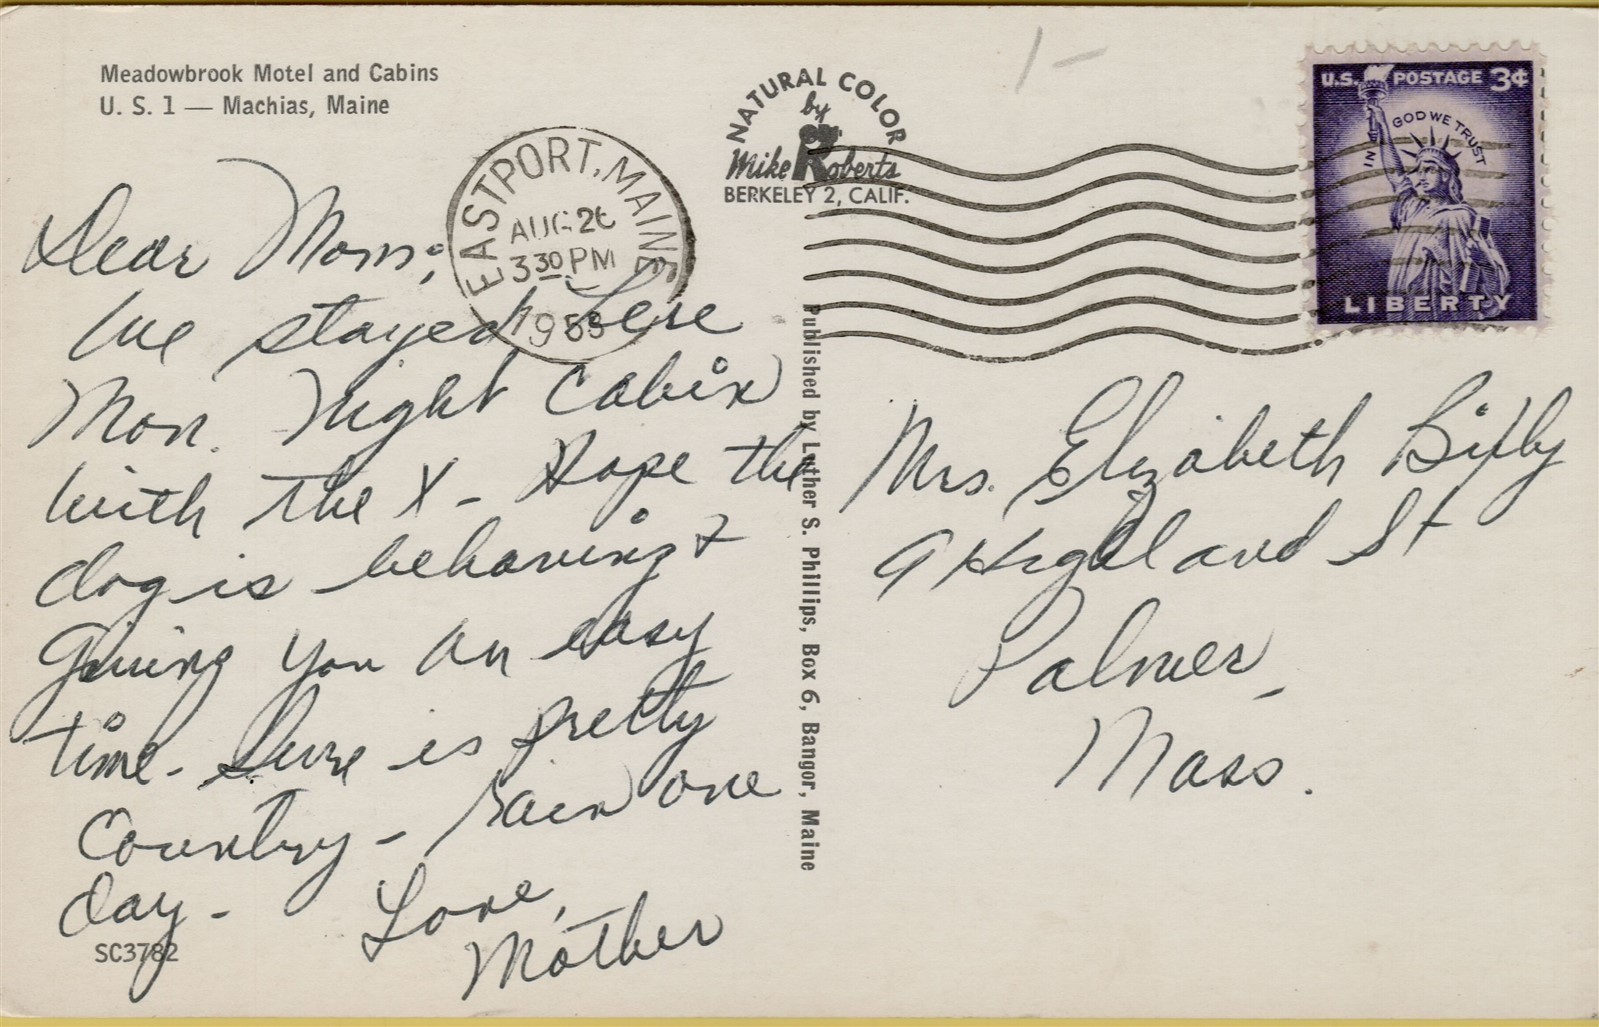 Meadowbrook Motel and Cabins
U. S. 1 — Machias, Maine
NATURAL COLOR
by
Mike Roberts
BERKELEY 2, CALIF.
EASTPORT, MAINE
AUG 26
3 30 PM
U.S. POSTAGE 3¢
IN GOD WE TRUST
LIBERTY
Dear Mom;
We stayed here
Mon. Night Cabin
with the X - Hope the
dog is behaving &
giving you an easy
time - Sure is pretty
Country - rain one
day -
Love,
Mother
SC3782
Published by Luther S. Phillips, Box 6, Bangor, Maine
Mrs. Elizabeth
9 Highland St
Palmer,
Mass.
1-